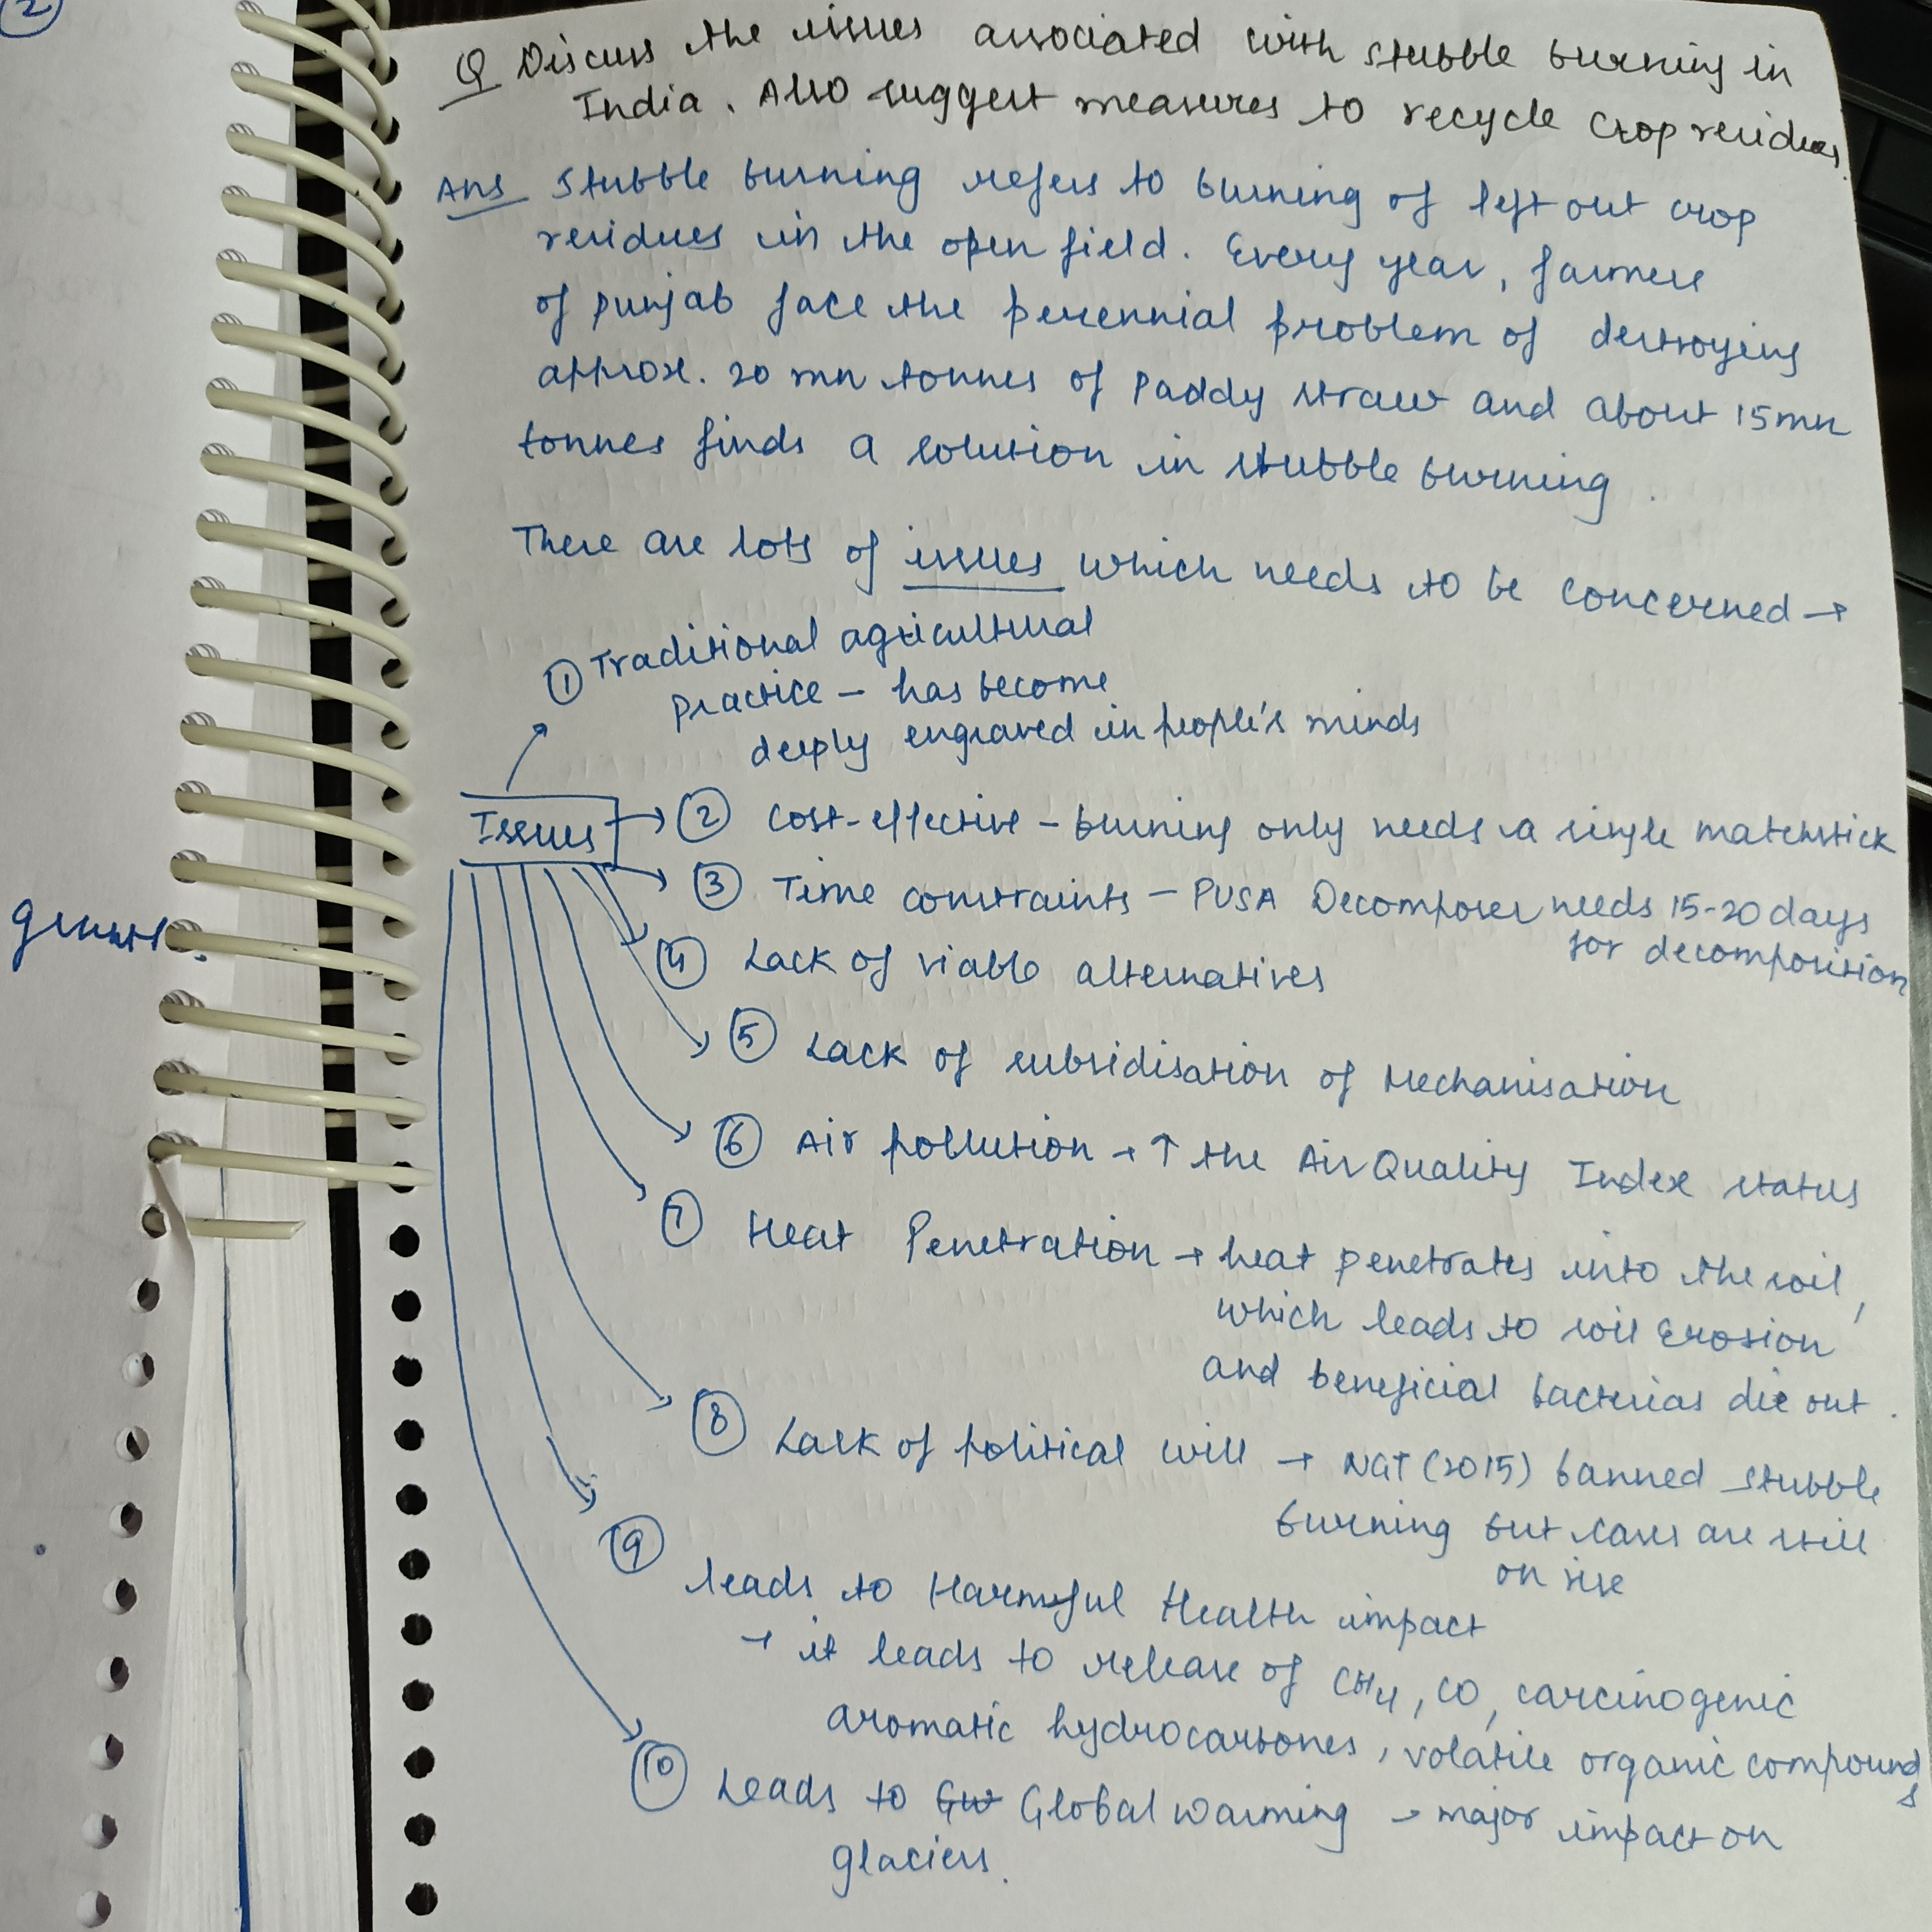 2
Q Discuss the issues associated with stubble burning in
India. Also suggest measures to recycle crop residues.
Ans Stubble burning refers to burning of left out crop
residues in the open field. Every year, farmers
of Punjab face the perennial problem of destroying
approx. 20 mn tonnes of Paddy straw and about 15mn
tonnes finds a solution in stubble burning.
There are lots of issues which needs to be concerned →
① Traditional agricultural
practice – has become
deeply engraved in people's minds
Issues → ② Cost-effective – burning only needs a single matchstick
③ Time constraints – PUSA Decomposer needs 15-20 days
for decomposition
④ Lack of viable alternatives
⑤ Lack of subsidisation of Mechanisation
⑥ Air pollution → ↑ the Air Quality Index status
⑦ Heat Penetration → heat penetrates into the soil,
which leads to soil Erosion
and beneficial bacterias die out.
⑧ Lack of political will → NGT (2015) banned stubble
burning but cases are still
on rise
⑨ leads to Harmful Health impact
→ it leads to release of CH4, CO, carcinogenic
aromatic hydrocarbones, volatile organic compounds
⑩ Leads to GW Global warming → major impact on
glaciers.